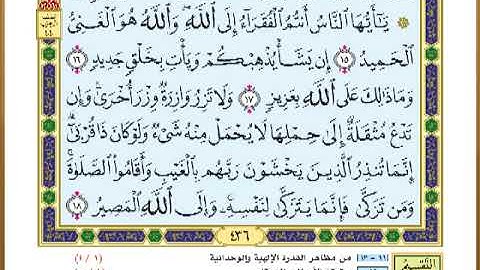 يَٰٓأَيُّهَا ٱلنَّاسُ أَنتُمُ ٱلْفُقَرَآءُ إِلَى ٱللَّهِ ۖ وَٱللَّهُ هُوَ ٱلْغَنِىُّ
ٱلْحَمِيدُ ١٥ إِن يَشَأْ يُذْهِبْكُمْ وَيَأْتِ بِخَلْقٍ جَدِيدٍ ١٦
وَمَا ذَٰلِكَ عَلَى ٱللَّهِ بِعَزِيزٍ ١٧ وَلَا تَزِرُ وَازِرَةٌ وِزْرَ أُخْرَىٰ ۚ وَإِن
تَدْعُ مُثْقَلَةٌ إِلَىٰ حِمْلِهَا لَا يُحْمَلْ مِنْهُ شَىْءٌ وَلَوْ كَانَ ذَا قُرْبَىٰٓ ۗ
إِنَّمَا تُنذِرُ ٱلَّذِينَ يَخْشَوْنَ رَبَّهُم بِٱلْغَيْبِ وَأَقَامُوا۟ ٱلصَّلَوٰةَ ۚ
وَمَن تَزَكَّىٰ فَإِنَّمَا يَتَزَكَّىٰ لِنَفْسِهِۦ ۚ وَإِلَى ٱللَّهِ ٱلْمَصِيرُ ١٨
٤٣٦
من مظاهر القدرة الإلهية والوحدانية